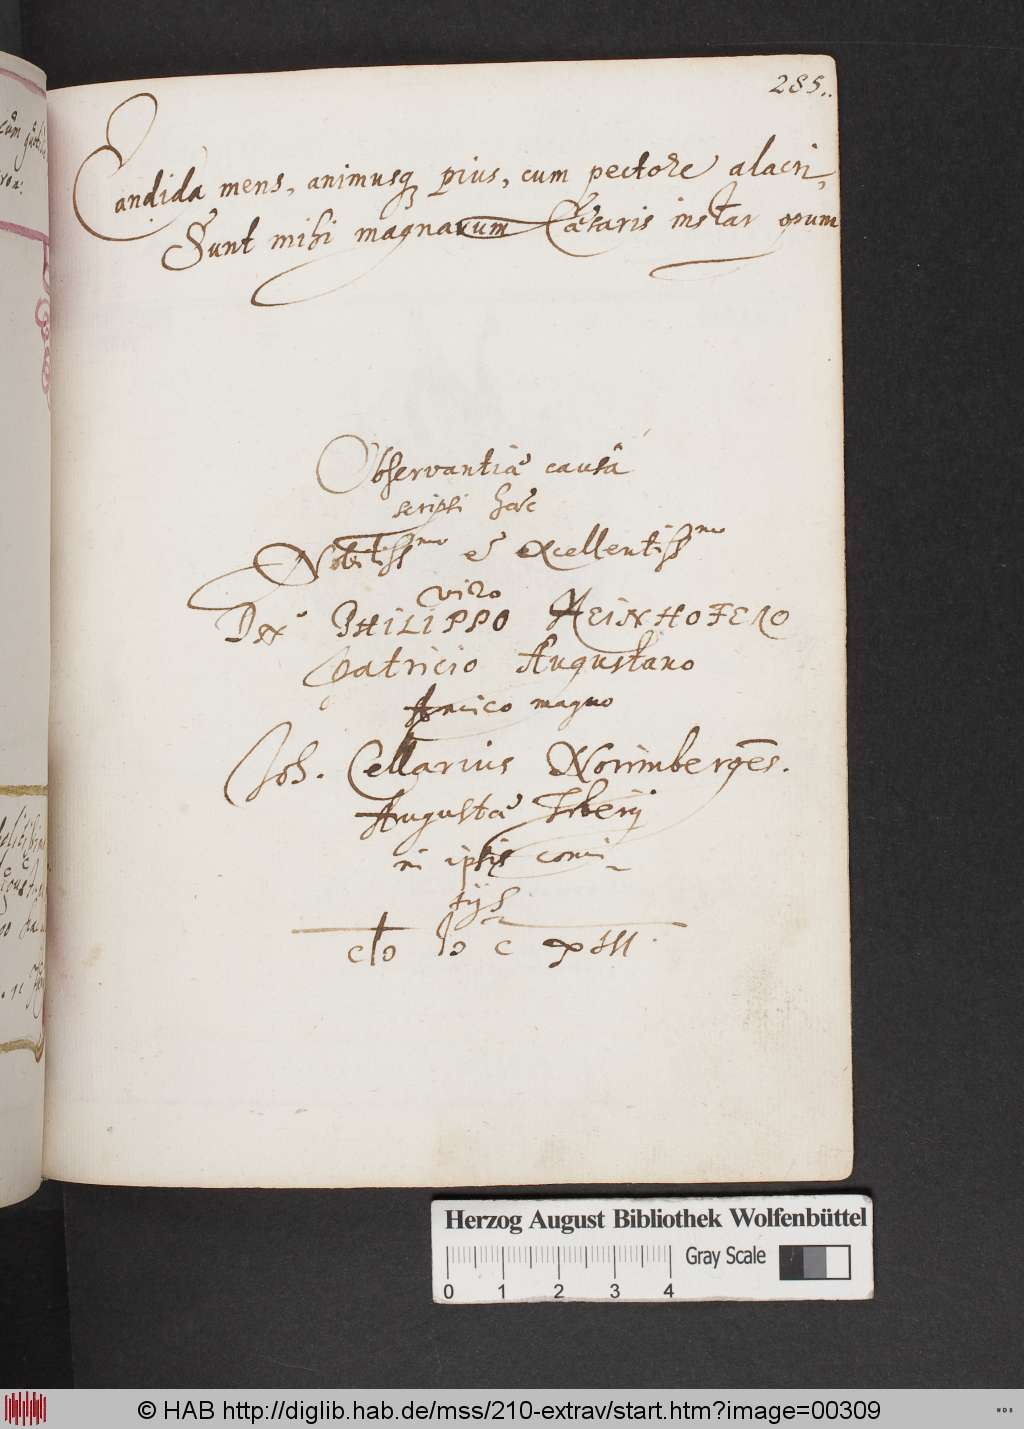 285..
Candida mens, animusq; pius, cum pectore alacri,
Sunt mihi magnarum Cæsaris instar opum
Observantiæ causâ
scripsi hæc
Nobiliss^mo et excellentiss^mo
viro
Dn. PHILIPPO HEINHOFERO
Patricio Augustano
Amico magno
Joh. Cellarius Norimbergēs.
Augustæ
in ipsis comi-
tijs
cIɔ Iɔ c XIII.
Herzog August Bibliothek Wolfenbüttel
Gray Scale
0 1 2 3 4
© HAB http://diglib.hab.de/mss/210-extrav/start.htm?image=00309